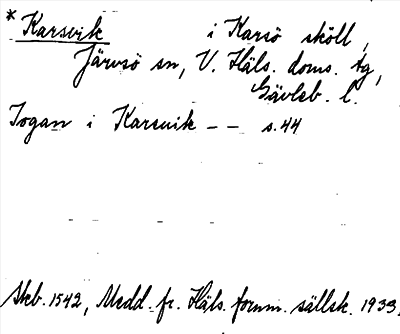 * Karsvik i Karsö sköll,
Järvsö sn, V. Häls. doms. tg,
Gävleb. l.
Jogan i Karsuik -- s. 44
Skb. 1542, Medd. fr. Häls. fornm. sällsk. 1933,